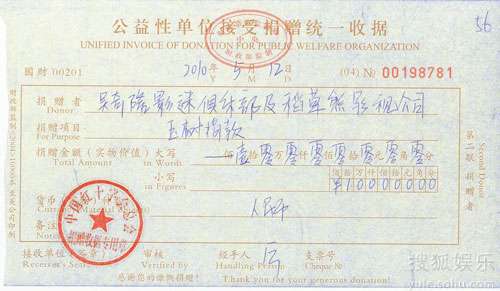 公益性单位接受捐赠统一收据
56
UNIFIED INVOICE OF DONATION FOR PUBLIC WELFARE ORGANIZATION
国财 00201
2010 年 5 月 12 日
Y M D
(04) № 00198781
捐赠者 吴奇隆影迷俱乐部及稻草熊影视公司
Donor
捐赠项目 玉树捐款
For Purpose
捐赠金额(实物价值)大写 壹 佰 零 拾 零 万 零 仟 零 佰 零 拾 零 元 零 角 零 分
Total Amount in Words
小写 佰 拾 万 仟 佰 拾 元 角 分
in Figures ¥100000000
人民币
中国红十字会总会
接收单位 审核 经手人 支票号
Receiver's Seal Verified by Handling Person Cheque №
感谢您的慷慨捐赠!
Thank you for your generous donation!
第二联 捐赠者
Second Donor
搜狐娱乐
yule.sohu.com